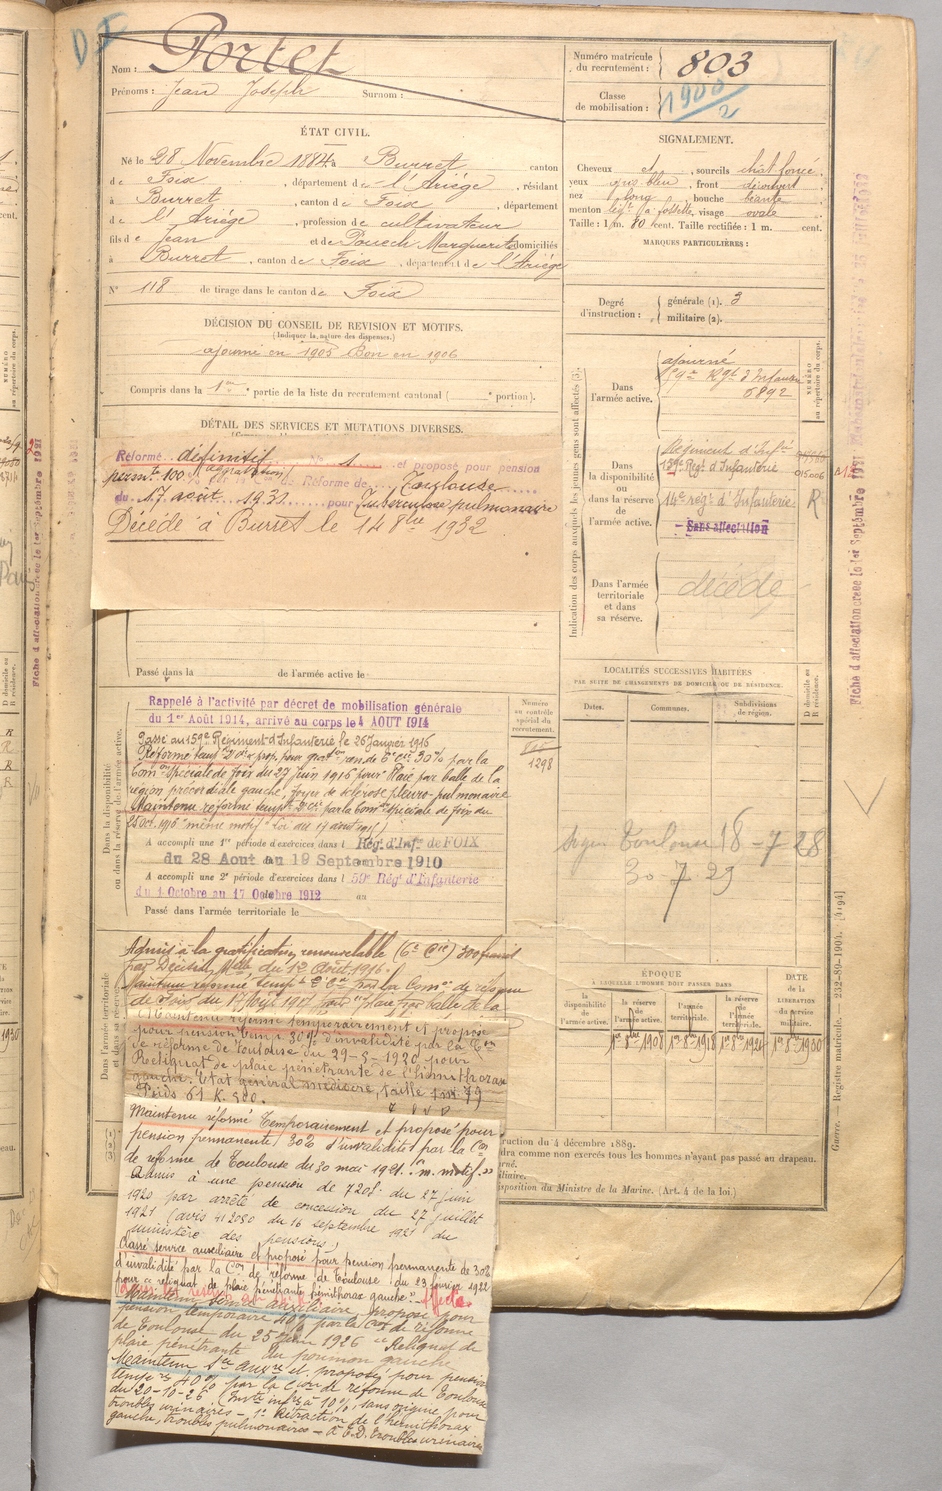 D.
Nom : Portet
Prénoms : Jean Joseph Surnom :
Numéro matricule du recrutement : 803
Classe de mobilisation : 1900/2
ÉTAT CIVIL.
Né le 28 Novembre 1884 à Burret canton
de Foix, département de l'Ariége, résidant
à Burret, canton de Foix, département
de l'Ariége, profession de cultivateur
fils de Jean et de Pouech Marguerite domiciliés
à Burret, canton de Foix, département de l'Ariége
N° 118 de tirage dans le canton de Foix
SIGNALEMENT.
Cheveux d, sourcils chât foncé.
yeux gris bleu, front découvert
nez long, bouche béante
menton à fossette, visage ovale
Taille : 1 m. 80 cent. Taille rectifiée : 1 m. cent.
MARQUES PARTICULIÈRES :
Degré d'instruction : générale (1). 3
militaire (2).
DÉCISION DU CONSEIL DE REVISION ET MOTIFS.
(Indiquer la nature des dispenses.)
ajourné en 1905 Bon en 1906
Compris dans la 1re partie de la liste du recrutement cantonal ( portion).
DÉTAIL DES SERVICES ET MUTATIONS DIVERSES.
Réformé définitif N° 1 et proposé pour pension
permte 100% (aggravation) par la Cion de Réforme de Toulouse
du 17 août 1931 pour Tuberculose pulmonaire
Décédé à Burret le 14 8bre 1932
Indication des corps auxquels les jeunes gens sont affectés (3).
NUMÉRO au répertoire du corps.
Dans l'armée active.
ajourné
59e Régt d'Infanterie
5892
Dans la disponibilité ou dans la réserve de l'armée active.
Régiment d'Infie
159e Régt d'Infanterie
015006
14e régt d'Infanterie
R
Sans affectation
Dans l'armée territoriale et dans sa réserve.
décédé
Passé dans la de l'armée active le
LOCALITÉS SUCCESSIVES HABITÉES
PAR SUITE DE CHANGEMENTS DE DOMICILE OU DE RÉSIDENCE.
Dates. Communes. Subdivisions de région. D domicile ou R résidence.
Toulouse 16-7-28
30-7 29
Dans la disponibilité ou dans la réserve de l'armée active.
Rappelé à l'activité par décret de mobilisation générale
du 1er Août 1914, arrivé au corps le 4 AOUT 1914
Passé au 159e Régiment d'Infanterie le 26 Janvier 1916
Réformé tempre N°1 et prop. pour gration ren de 6e cie 30% par la
Comon Spéciale de Foix du 27 juin 1916 pour "Plaie par balle de la
région précordiale gauche, foyer de sclérose pleuro-pulmonaire
Maintenu réformé tempre par la Comon Spéciale de Foix du
25 oct. 1916 "même motif"
A accompli une 1re période d'exercices dans l Régt d'Infie de FOIX
du 28 Aout au 19 Septembre 1910
A accompli une 2e période d'exercices dans l 59e Régt d'Infanterie
du 1 Octobre au 17 Octobre 1912 au
Passé dans l'armée territoriale le
Numéro au contrôle spécial du recrutement.
1298
Dans l'armée territoriale
Admis à la gratification renouvelable (6e Cie) 300 francs
par Décision Mlle du 12 Août 1916.
Maintenu réformé tempre par la Comon de réforme
de Foix du 17 Août 1917 pour "plaie par balle de la
Maintenu réformé temporairement et proposé
pour pension temp. 30% d'invalidité par la Con
de réforme de Toulouse du 29-3-1920 pour
Reliquat de plaie pénétrante de l'hémithorax
gauche. Etat général médiocre, taille 1m79
Poids 61 K. 500.
Maintenu réformé Temporairement et proposé pour
pension permanente 30% d'invalidité par la Con
de réforme de Toulouse du 30 mai 1921. "m. motif."
Admis à une pension de 720f du 27 juin
1920 par arrêté de concession du 27 juillet
1921 (avis 412050 du 16 septembre 1921 du
ministère des pensions)
Classé service auxiliaire et proposé pour pension permanente de 30%
d'invalidité par la Con de réforme de Toulouse du 23 février 1922
pour "reliquat de plaie pénétrante hémithorax gauche."
Maintenu service auxiliaire, proposé pour
pension temporaire 40% par la Con de réforme
de Toulouse du 25 1926 "Reliquat de
plaie pénétrante du poumon gauche
Maintenu Sce auxre et proposé pour pension
tempre 40% par la Cion de réforme de Toulouse
du 20-10-26 à 10%, sans origine, pour
troubles urinaires - 1° Rétraction de l'hémithorax
gauche, troubles pulmonaires - 2° Troubles urinaires
ÉPOQUE
À LAQUELLE L'HOMME DOIT PASSER DANS
DATE DE LA LIBÉRATION du service militaire.
la disponibilité de l'armée active. la réserve de l'armée active. l'armée territoriale. la réserve de l'armée territoriale.
1er 8bre 1908 1er 8bre 1918 1er 8bre 1924 1er 8bre 1930
truction du 4 décembre 1889.
dra comme non exercés tous les hommes n'ayant pas passé au drapeau.
rné.
iliaire.
sposition du Ministre de la Marine. (Art. 4 de la loi.)
Guerre. — Registre matricule. — 232-89-1900. [4194]
Fiche d'affectation créée le 1er Septembre 1921
Fiche d'affectation créée le 1er Septembre 1921